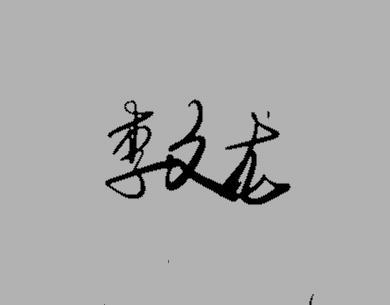 李文龙